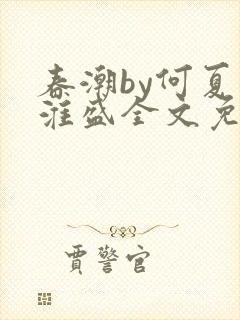 春潮by何夏
淮盛全文免
贾警官